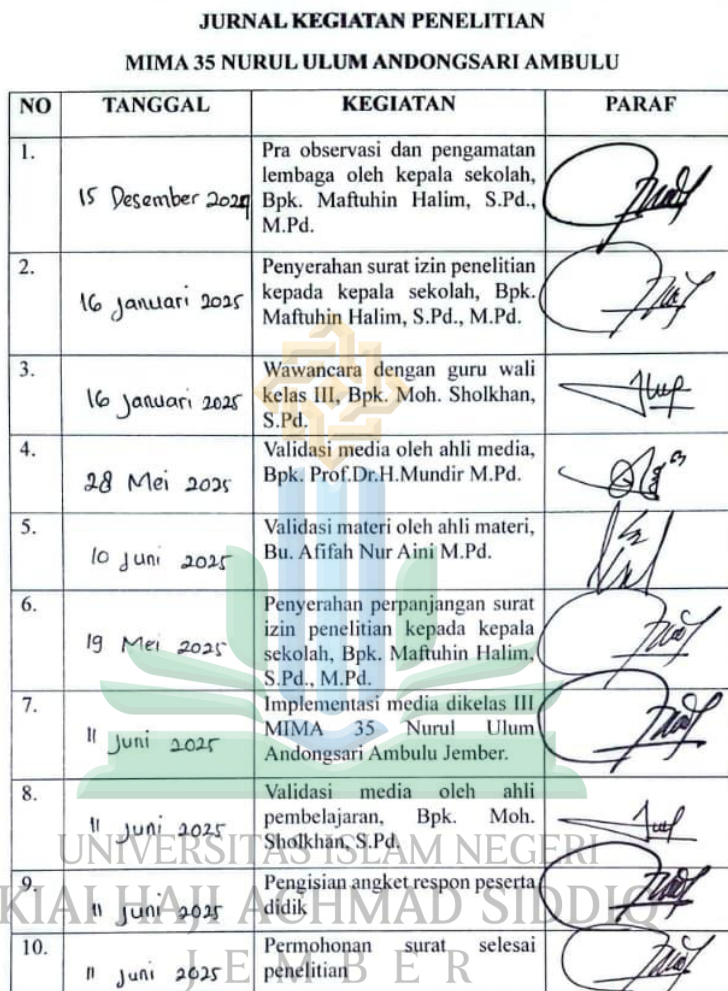 JURNAL KEGIATAN PENELITIAN
MIMA 35 NURUL ULUM ANDONGSARI AMBULU
NO TANGGAL KEGIATAN PARAF
1. 15 Desember 2024 Pra observasi dan pengamatan
lembaga oleh kepala sekolah,
Bpk. Maftuhin Halim, S.Pd.,
M.Pd.
2. 16 Januari 2025 Penyerahan surat izin penelitian
kepada kepala sekolah, Bpk.
Maftuhin Halim, S.Pd., M.Pd.
3. 16 Januari 2025 Wawancara dengan guru wali
kelas III, Bpk. Moh. Sholkhan,
S.Pd.
4. 28 Mei 2025 Validasi media oleh ahli media,
Bpk. Prof.Dr.H.Mundir M.Pd.
5. 10 Juni 2025 Validasi materi oleh ahli materi,
Bu. Afifah Nur Aini M.Pd.
6. 19 Mei 2025 Penyerahan perpanjangan surat
izin penelitian kepada kepala
sekolah, Bpk. Maftuhin Halim,
S.Pd., M.Pd.
7. 11 Juni 2025 Implementasi media dikelas III
MIMA 35 Nurul Ulum
Andongsari Ambulu Jember.
8. 11 Juni 2025 Validasi media oleh ahli
pembelajaran, Bpk. Moh.
Sholkhan, S.Pd.
9. 11 Juni 2025 Pengisian angket respon peserta
didik
10. 11 Juni 2025 Permohonan surat selesai
penelitian
UNIVERSITAS ISLAM NEGERI
KIAI HAJI ACHMAD SIDDIQ
JEMBER